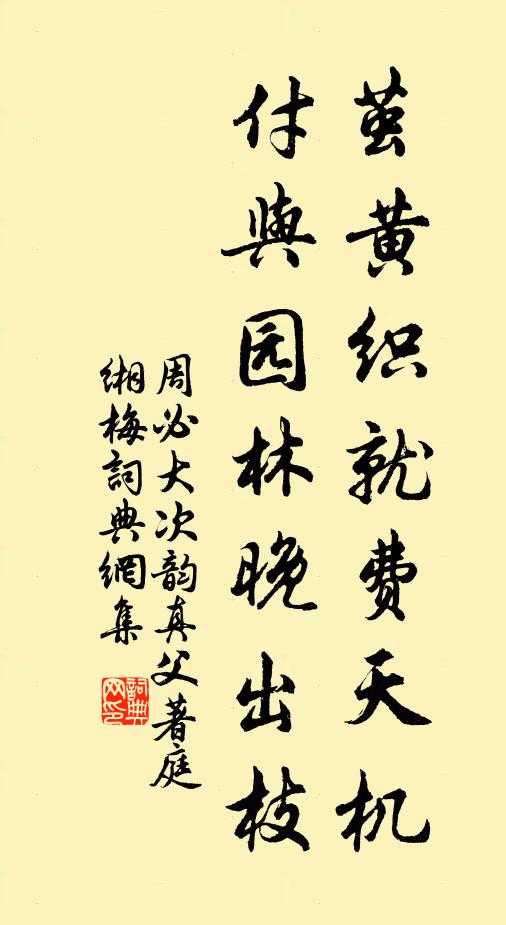 茧黄织就费天机
付與园林晚出枝
周必大次韵真父著庭
缃梅詞典網集
詞典网印